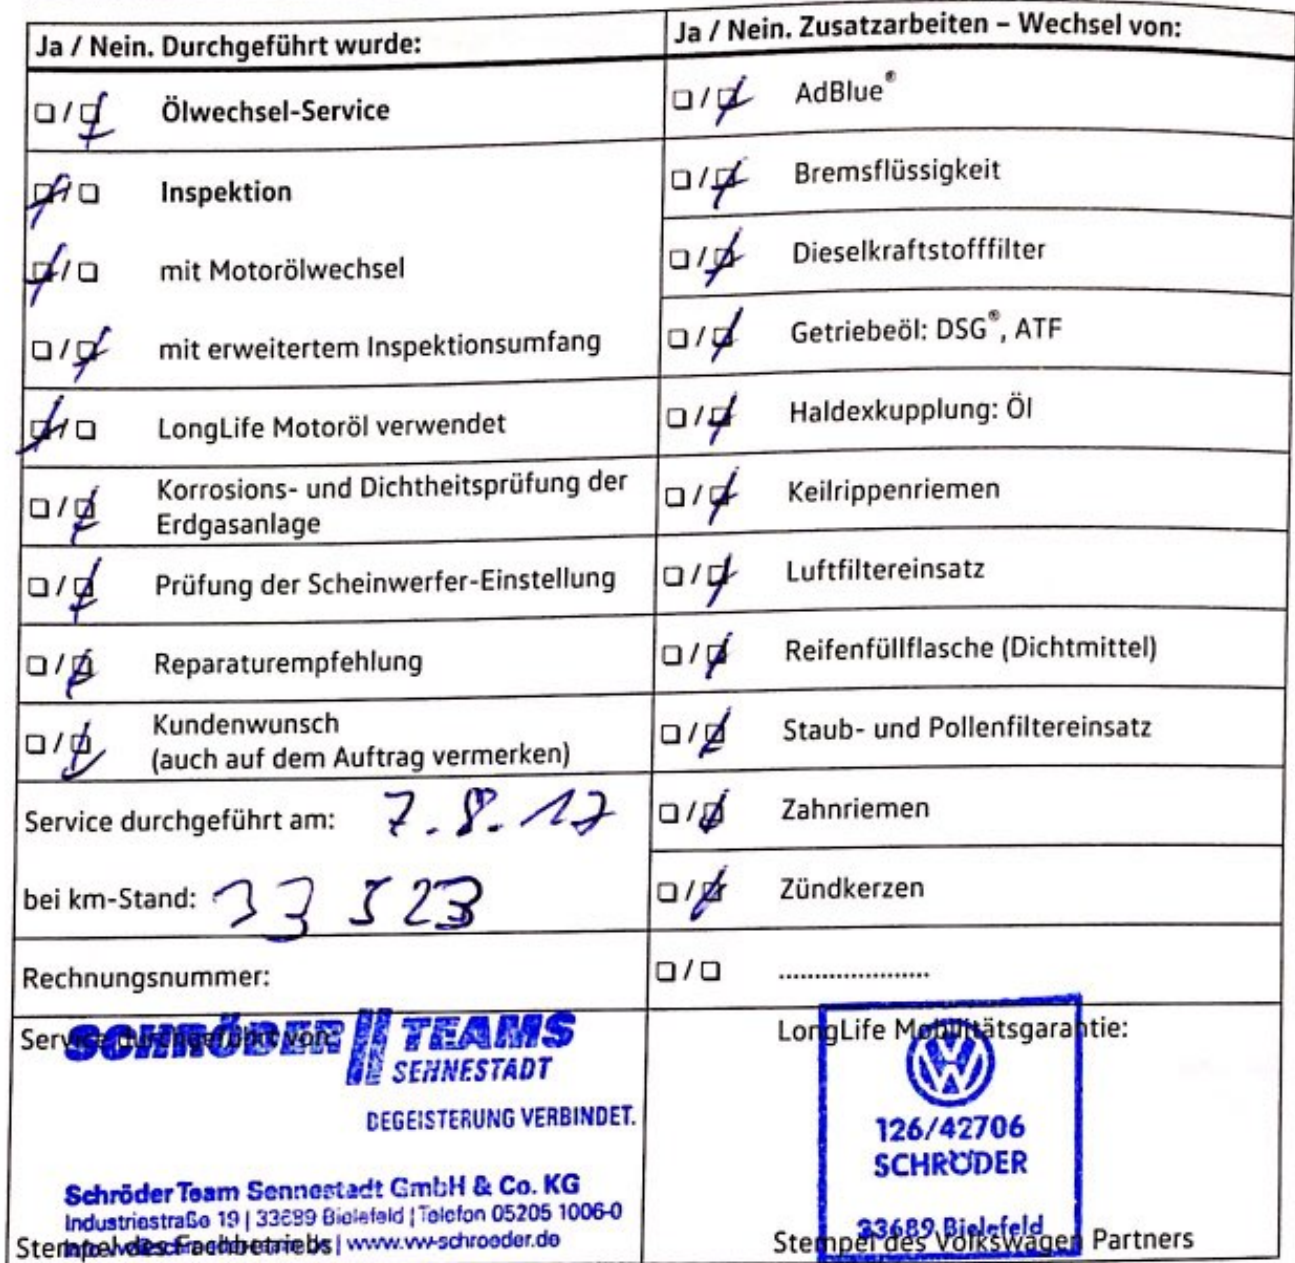 Ja / Nein. Durchgeführt wurde:
☐ / ☒ Ölwechsel-Service
☒ / ☐ Inspektion
☒ / ☐ mit Motorölwechsel
☐ / ☒ mit erweitertem Inspektionsumfang
☒ / ☐ LongLife Motoröl verwendet
☐ / ☒ Korrosions- und Dichtheitsprüfung der
Erdgasanlage
☐ / ☒ Prüfung der Scheinwerfer-Einstellung
☐ / ☒ Reparaturempfehlung
☐ / ☒ Kundenwunsch
(auch auf dem Auftrag vermerken)
Service durchgeführt am: 7.8.17
bei km-Stand: 33 523
Rechnungsnummer:
Service durchgeführt von:
SCHRÖDER TEAMS
SENNESTADT
BEGEISTERUNG VERBINDET.
Schröder Team Sennestadt GmbH & Co. KG
Industriestraße 19 | 33689 Bielefeld | Telefon 05205 1006-0
| www.vw-schroeder.de
Stempel des Fachbetriebs
Ja / Nein. Zusatzarbeiten – Wechsel von:
☐ / ☒ AdBlue®
☐ / ☒ Bremsflüssigkeit
☐ / ☒ Dieselkraftstofffilter
☐ / ☒ Getriebeöl: DSG®, ATF
☐ / ☒ Haldexkupplung: Öl
☐ / ☒ Keilrippenriemen
☐ / ☒ Luftfiltereinsatz
☐ / ☒ Reifenfüllflasche (Dichtmittel)
☐ / ☒ Staub- und Pollenfiltereinsatz
☐ / ☒ Zahnriemen
☐ / ☒ Zündkerzen
☐ / ☐ .....................
LongLife Mobilitätsgarantie:
VW
126/42706
SCHRÖDER
33689 Bielefeld
Stempel des Volkswagen Partners